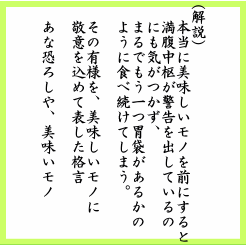 (解説)
本当に美味しいモノを前にすると
満腹中枢が警告を出しているの
にも気がつかず、
まるでもう一つ胃袋があるかの
ように食べ続けてしまう。
その有様を、美味しいモノに
敬意を込めて表した格言
あな恐ろしや、美味いモノ